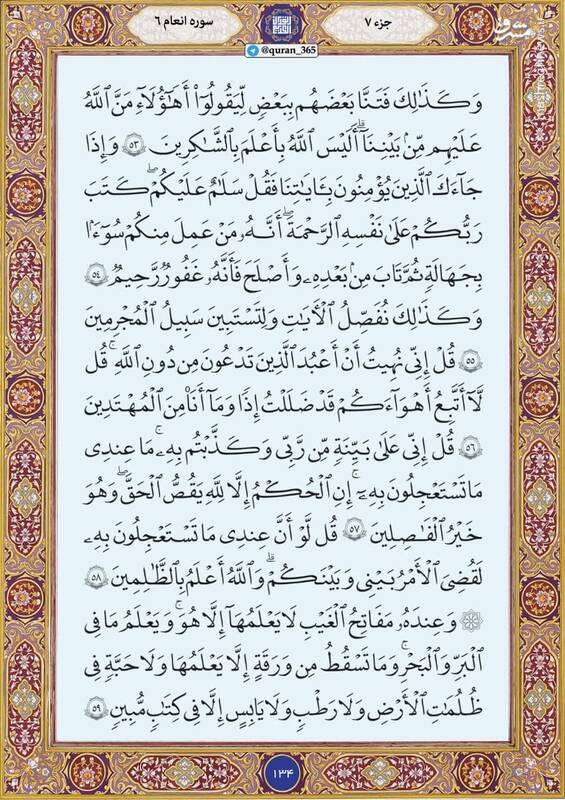 جزء ۷
سوره انعام ۶
@quran_365
مشرق
وَكَذَٰلِكَ فَتَنَّا بَعْضَهُم بِبَعْضٍ لِّيَقُولُوٓا۟ أَهَـٰٓؤُلَآءِ مَنَّ ٱللَّهُ
عَلَيْهِم مِّنۢ بَيْنِنَآ ۗ أَلَيْسَ ٱللَّهُ بِأَعْلَمَ بِٱلشَّـٰكِرِينَ ۝٥٣ وَإِذَا
جَآءَكَ ٱلَّذِينَ يُؤْمِنُونَ بِـَٔايَـٰتِنَا فَقُلْ سَلَـٰمٌ عَلَيْكُمْ ۖ كَتَبَ
رَبُّكُمْ عَلَىٰ نَفْسِهِ ٱلرَّحْمَةَ ۖ أَنَّهُۥ مَنْ عَمِلَ مِنكُمْ سُوٓءًۢا
بِجَهَـٰلَةٍ ثُمَّ تَابَ مِنۢ بَعْدِهِۦ وَأَصْلَحَ فَأَنَّهُۥ غَفُورٌ رَّحِيمٌ ۝٥٤
وَكَذَٰلِكَ نُفَصِّلُ ٱلْـَٔايَـٰتِ وَلِتَسْتَبِينَ سَبِيلُ ٱلْمُجْرِمِينَ
۝٥٥ قُلْ إِنِّى نُهِيتُ أَنْ أَعْبُدَ ٱلَّذِينَ تَدْعُونَ مِن دُونِ ٱللَّهِ ۚ قُل
لَّآ أَتَّبِعُ أَهْوَآءَكُمْ ۙ قَدْ ضَلَلْتُ إِذًا وَمَآ أَنَا۠ مِنَ ٱلْمُهْتَدِينَ
۝٥٦ قُلْ إِنِّى عَلَىٰ بَيِّنَةٍ مِّن رَّبِّى وَكَذَّبْتُم بِهِۦ ۚ مَا عِندِى
مَا تَسْتَعْجِلُونَ بِهِۦٓ ۚ إِنِ ٱلْحُكْمُ إِلَّا لِلَّهِ ۖ يَقُصُّ ٱلْحَقَّ ۖ وَهُوَ
خَيْرُ ٱلْفَـٰصِلِينَ ۝٥٧ قُل لَّوْ أَنَّ عِندِى مَا تَسْتَعْجِلُونَ بِهِۦ
لَقُضِىَ ٱلْأَمْرُ بَيْنِى وَبَيْنَكُمْ ۗ وَٱللَّهُ أَعْلَمُ بِٱلظَّـٰلِمِينَ ۝٥٨
۞ وَعِندَهُۥ مَفَاتِحُ ٱلْغَيْبِ لَا يَعْلَمُهَآ إِلَّا هُوَ ۚ وَيَعْلَمُ مَا فِى
ٱلْبَرِّ وَٱلْبَحْرِ ۚ وَمَا تَسْقُطُ مِن وَرَقَةٍ إِلَّا يَعْلَمُهَا وَلَا حَبَّةٍ فِى
ظُلُمَـٰتِ ٱلْأَرْضِ وَلَا رَطْبٍ وَلَا يَابِسٍ إِلَّا فِى كِتَـٰبٍ مُّبِينٍ ۝٥٩
۱۳۴